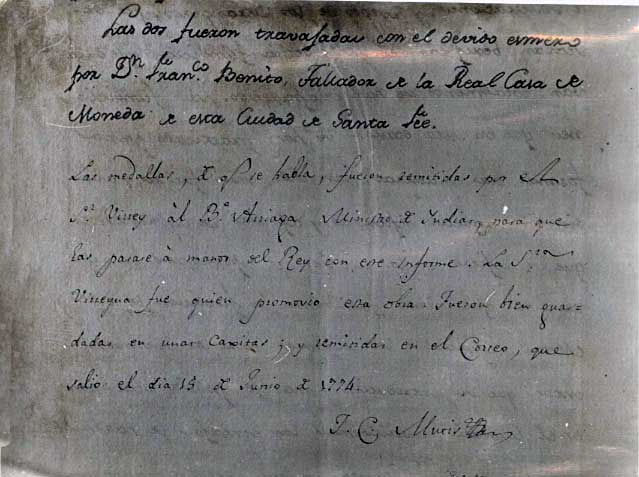 Las dos fueron travajadas con el devido esmero
por Dn. Franco. Benito, Tallador de la Real Casa de
Moneda de esta Ciudad de Santa Fee.
Las medallas, d qe. se habla, fueron remitidas por el
Sr. Virrey àl Bo. Arriaga Ministro d Indias, para que
las pasase à manos del Rey con este informe. La Sra.
Virreyna fue quien promovio esta obra. Fueron bien guar-
dadas en unas Caxitas; y remitidas en el Correo, que
salio el dia 15 d Junio d 1774.
J. C. Mutis